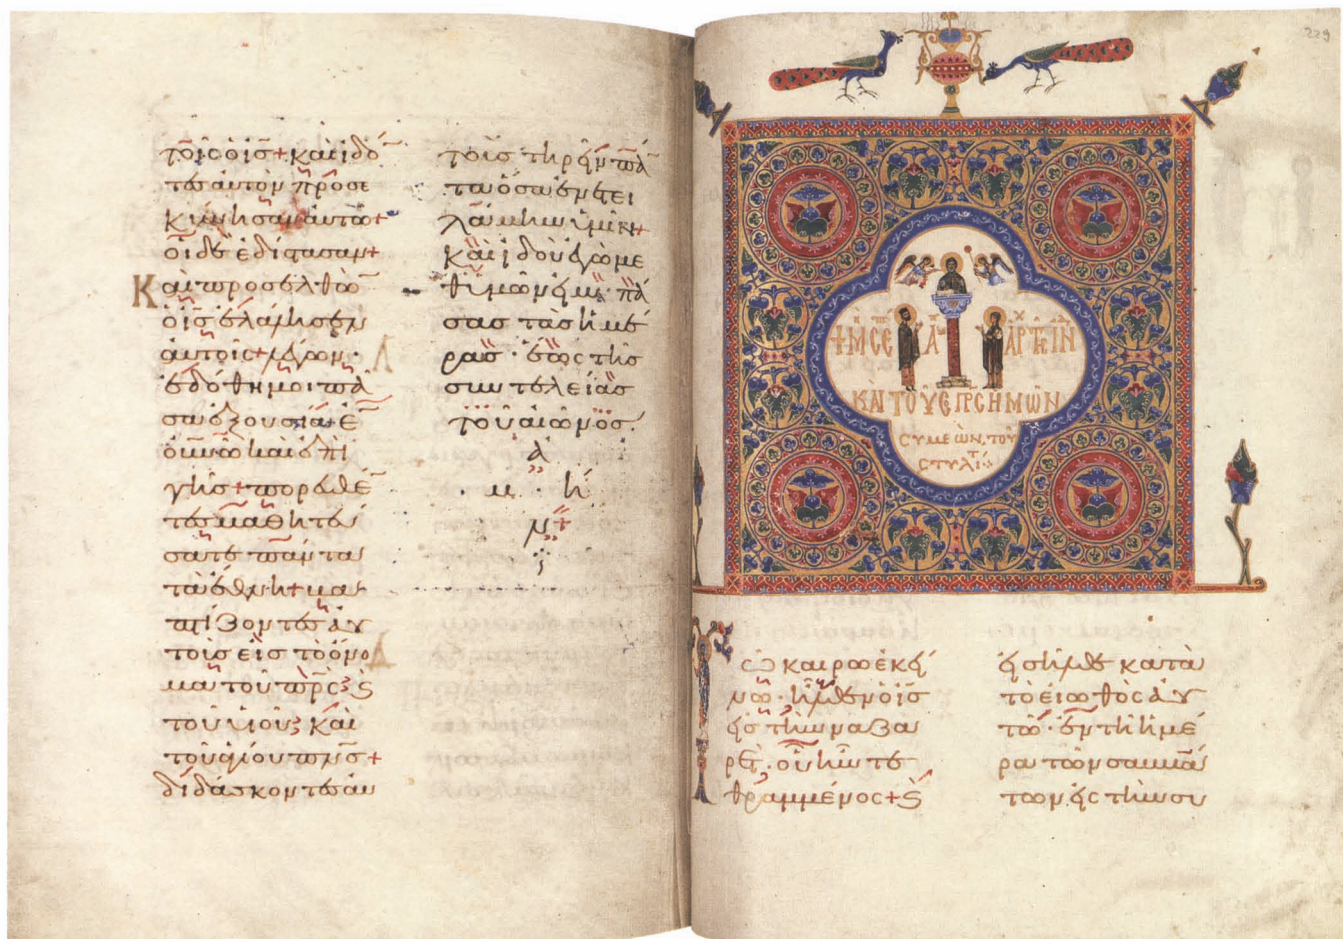 το ὁ ι̅ς̅ + καὶ ἰδό
τες αὐτὸν προσε
κύνησαν αὐτῶ +
οἱ δὲ ἐδίστασαν +
Καὶ προσελθὼ
ὁ ι̅ς̅ ἐλάλησεν
αὐτοῖς + λέγων ·
ἐδόθη μοι πᾶ
σα ἐξουσία + ἐ
ο̅υ̅ν̅ῶ καὶ ἐπὶ
γῆς + πορευθέ
τες μαθητεύ
σατε πάντα
τὰ ἔθνη + βα
πτίζοντες αὐ
τοὺς εἰς τὸ ὄνο
μα τοῦ π̅ρ̅ς̅ ϗ
τοῦ υἱοῦ ϗ
τοῦ ἁγίου π̅ν̅ς̅ +
διδάσκοντες αὐ
τοὺς τηρεῖν πά
τα ὅσα ἐνετει
λάμην ὑμῖν +
καὶ ἰδοὺ ἐγὼ με
θ' ὑμῶν εἰμι πά
σας τὰς ἡμέ
ρας · ἕως τῆς
συντελείας
τοῦ αἰῶνος .
ἀ
· μ · ή
ν +
229
ΚΑῚ ΤΟΥ ΠΡ̅С ΗΜΩ͂Ν
СΥΜΕῺΝ ΤΟΥ͂
СΤΥΛΙ
Τῶ καιρῶ ἐκεί
νω · ἦλθεν ὁ ι̅ς̅
εἰς τὴν ναζα
ρέτ · οὗ ἦν τε
θραμμένος + ϗ
εἰσῆλθε κατὰ
τὸ εἰωθὸς αὐ
τῶ · ἐν τῆ ἡμέ
ρα τῶν σαββά
των εἰς τὴν συ